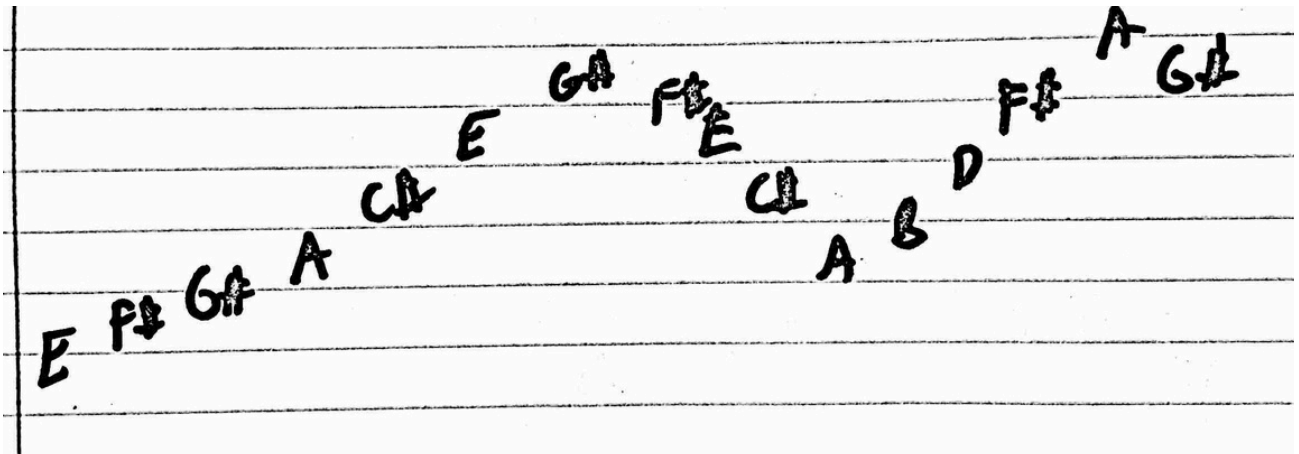 E F# G# A C# E G# F# E C# A B D F# A G#